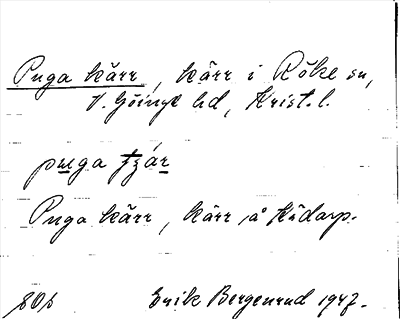 Puga kärr, kärr i Röke sn,
V. Göinge hd, Krist. l.
puga tɟár
Puga kärr, kärr å Hidarp.
Erik Bergenrud 1947.